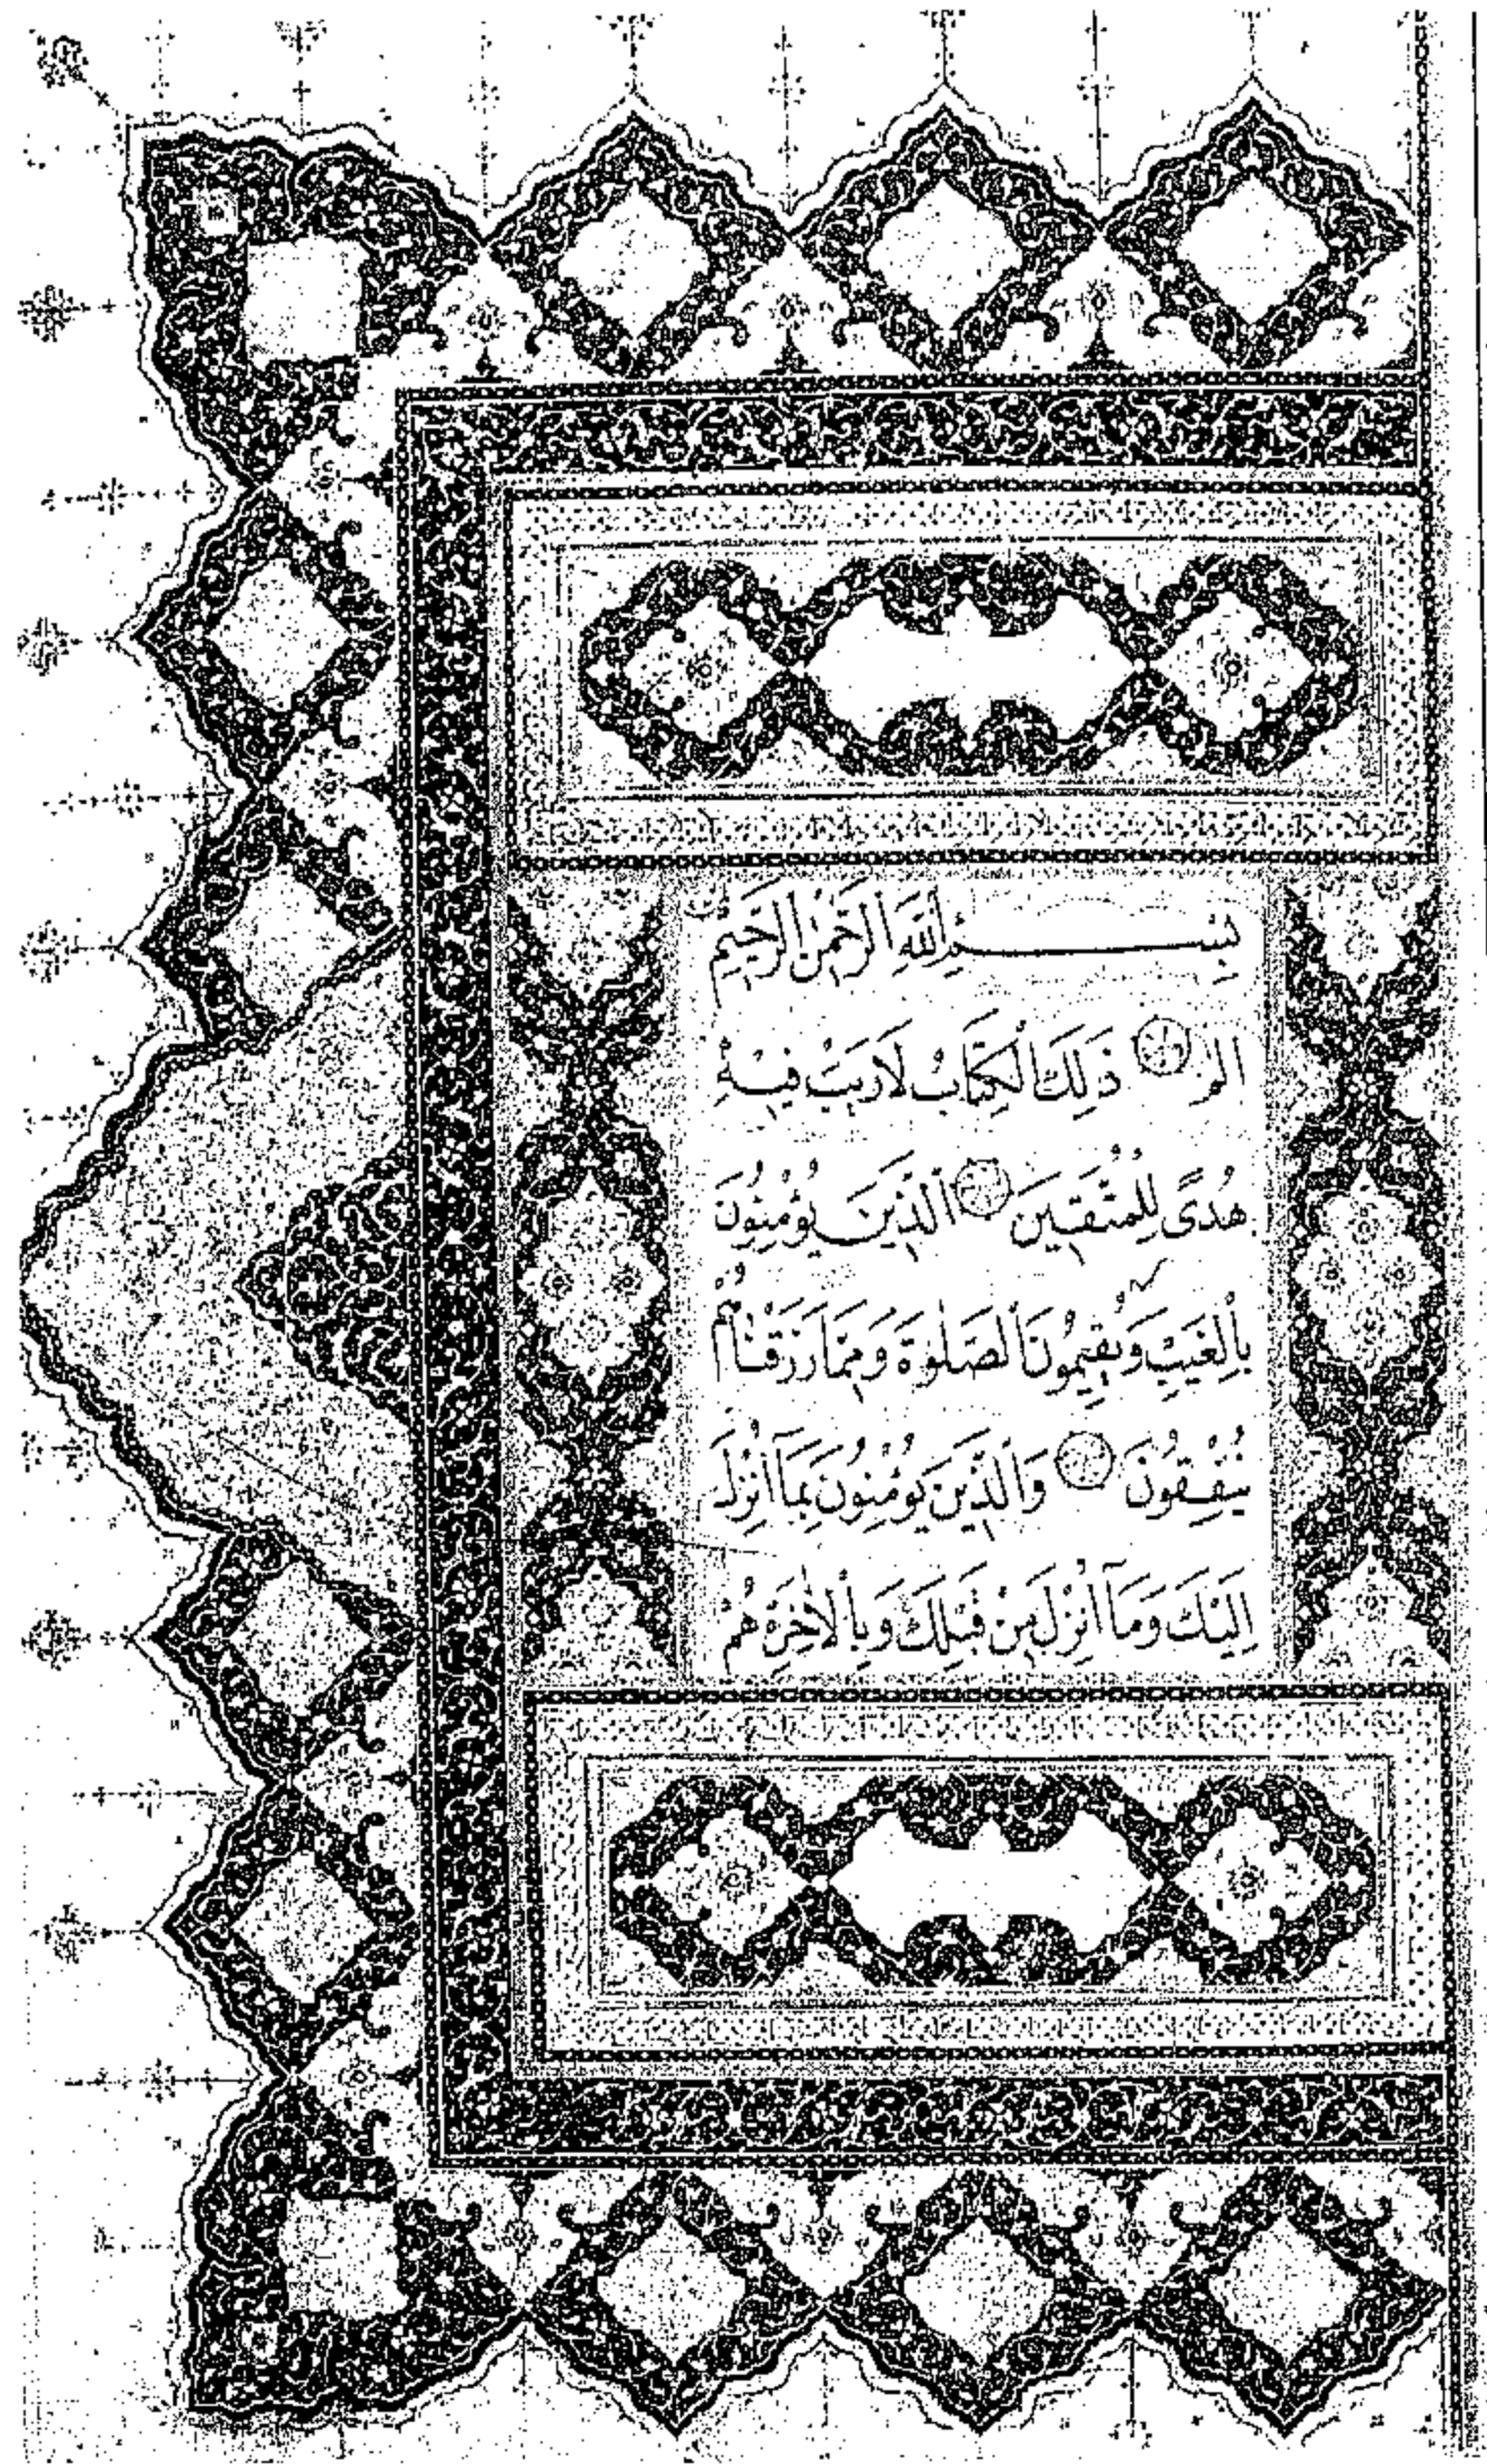 بِسْمِ اللّٰهِ الرَّحْمٰنِ الرَّحِيمِ
الم ذٰلِكَ الْكِتَابُ لَا رَيْبَ فِيهِ
هُدًى لِلْمُتَّقِينَ الَّذِينَ يُؤْمِنُونَ
بِالْغَيْبِ وَيُقِيمُونَ الصَّلٰوةَ وَمِمَّا رَزَقْنَاهُمْ
يُنْفِقُونَ وَالَّذِينَ يُؤْمِنُونَ بِمَآ اُنْزِلَ
اِلَيْكَ وَمَآ اُنْزِلَ مِنْ قَبْلِكَ وَبِالْاٰخِرَةِ هُمْ